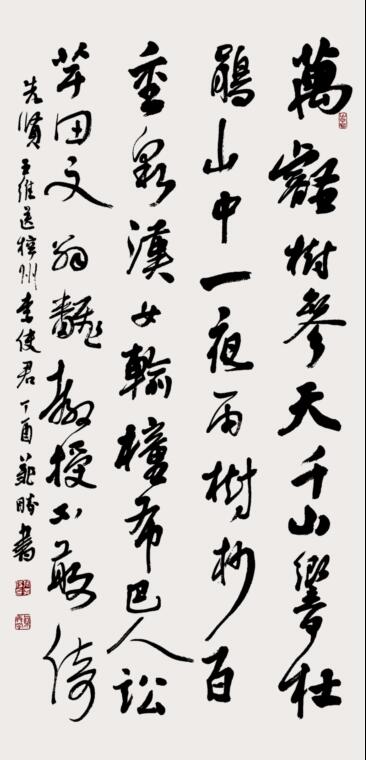 萬壑樹參天千山響杜
鵑山中一夜雨樹杪百
重泉漢女輸橦布巴人訟
芋田文翁翻教授不敢倚
先賢王維送梓州李使君丁酉書